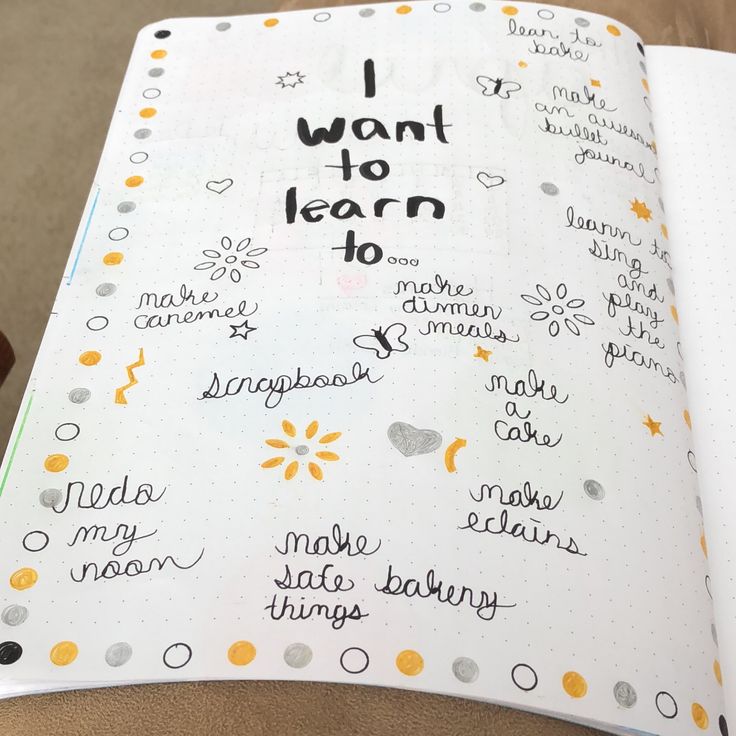 I
want
to
learn
to...
lean to
bake
make
an awesom
bullet
jounal
learn to
sing
and
play
the
piano
make
caremel
make
dinner
meals
scrapbook
make
a
cake
make
eclairs
redo
my
room
make
safe bakery
things